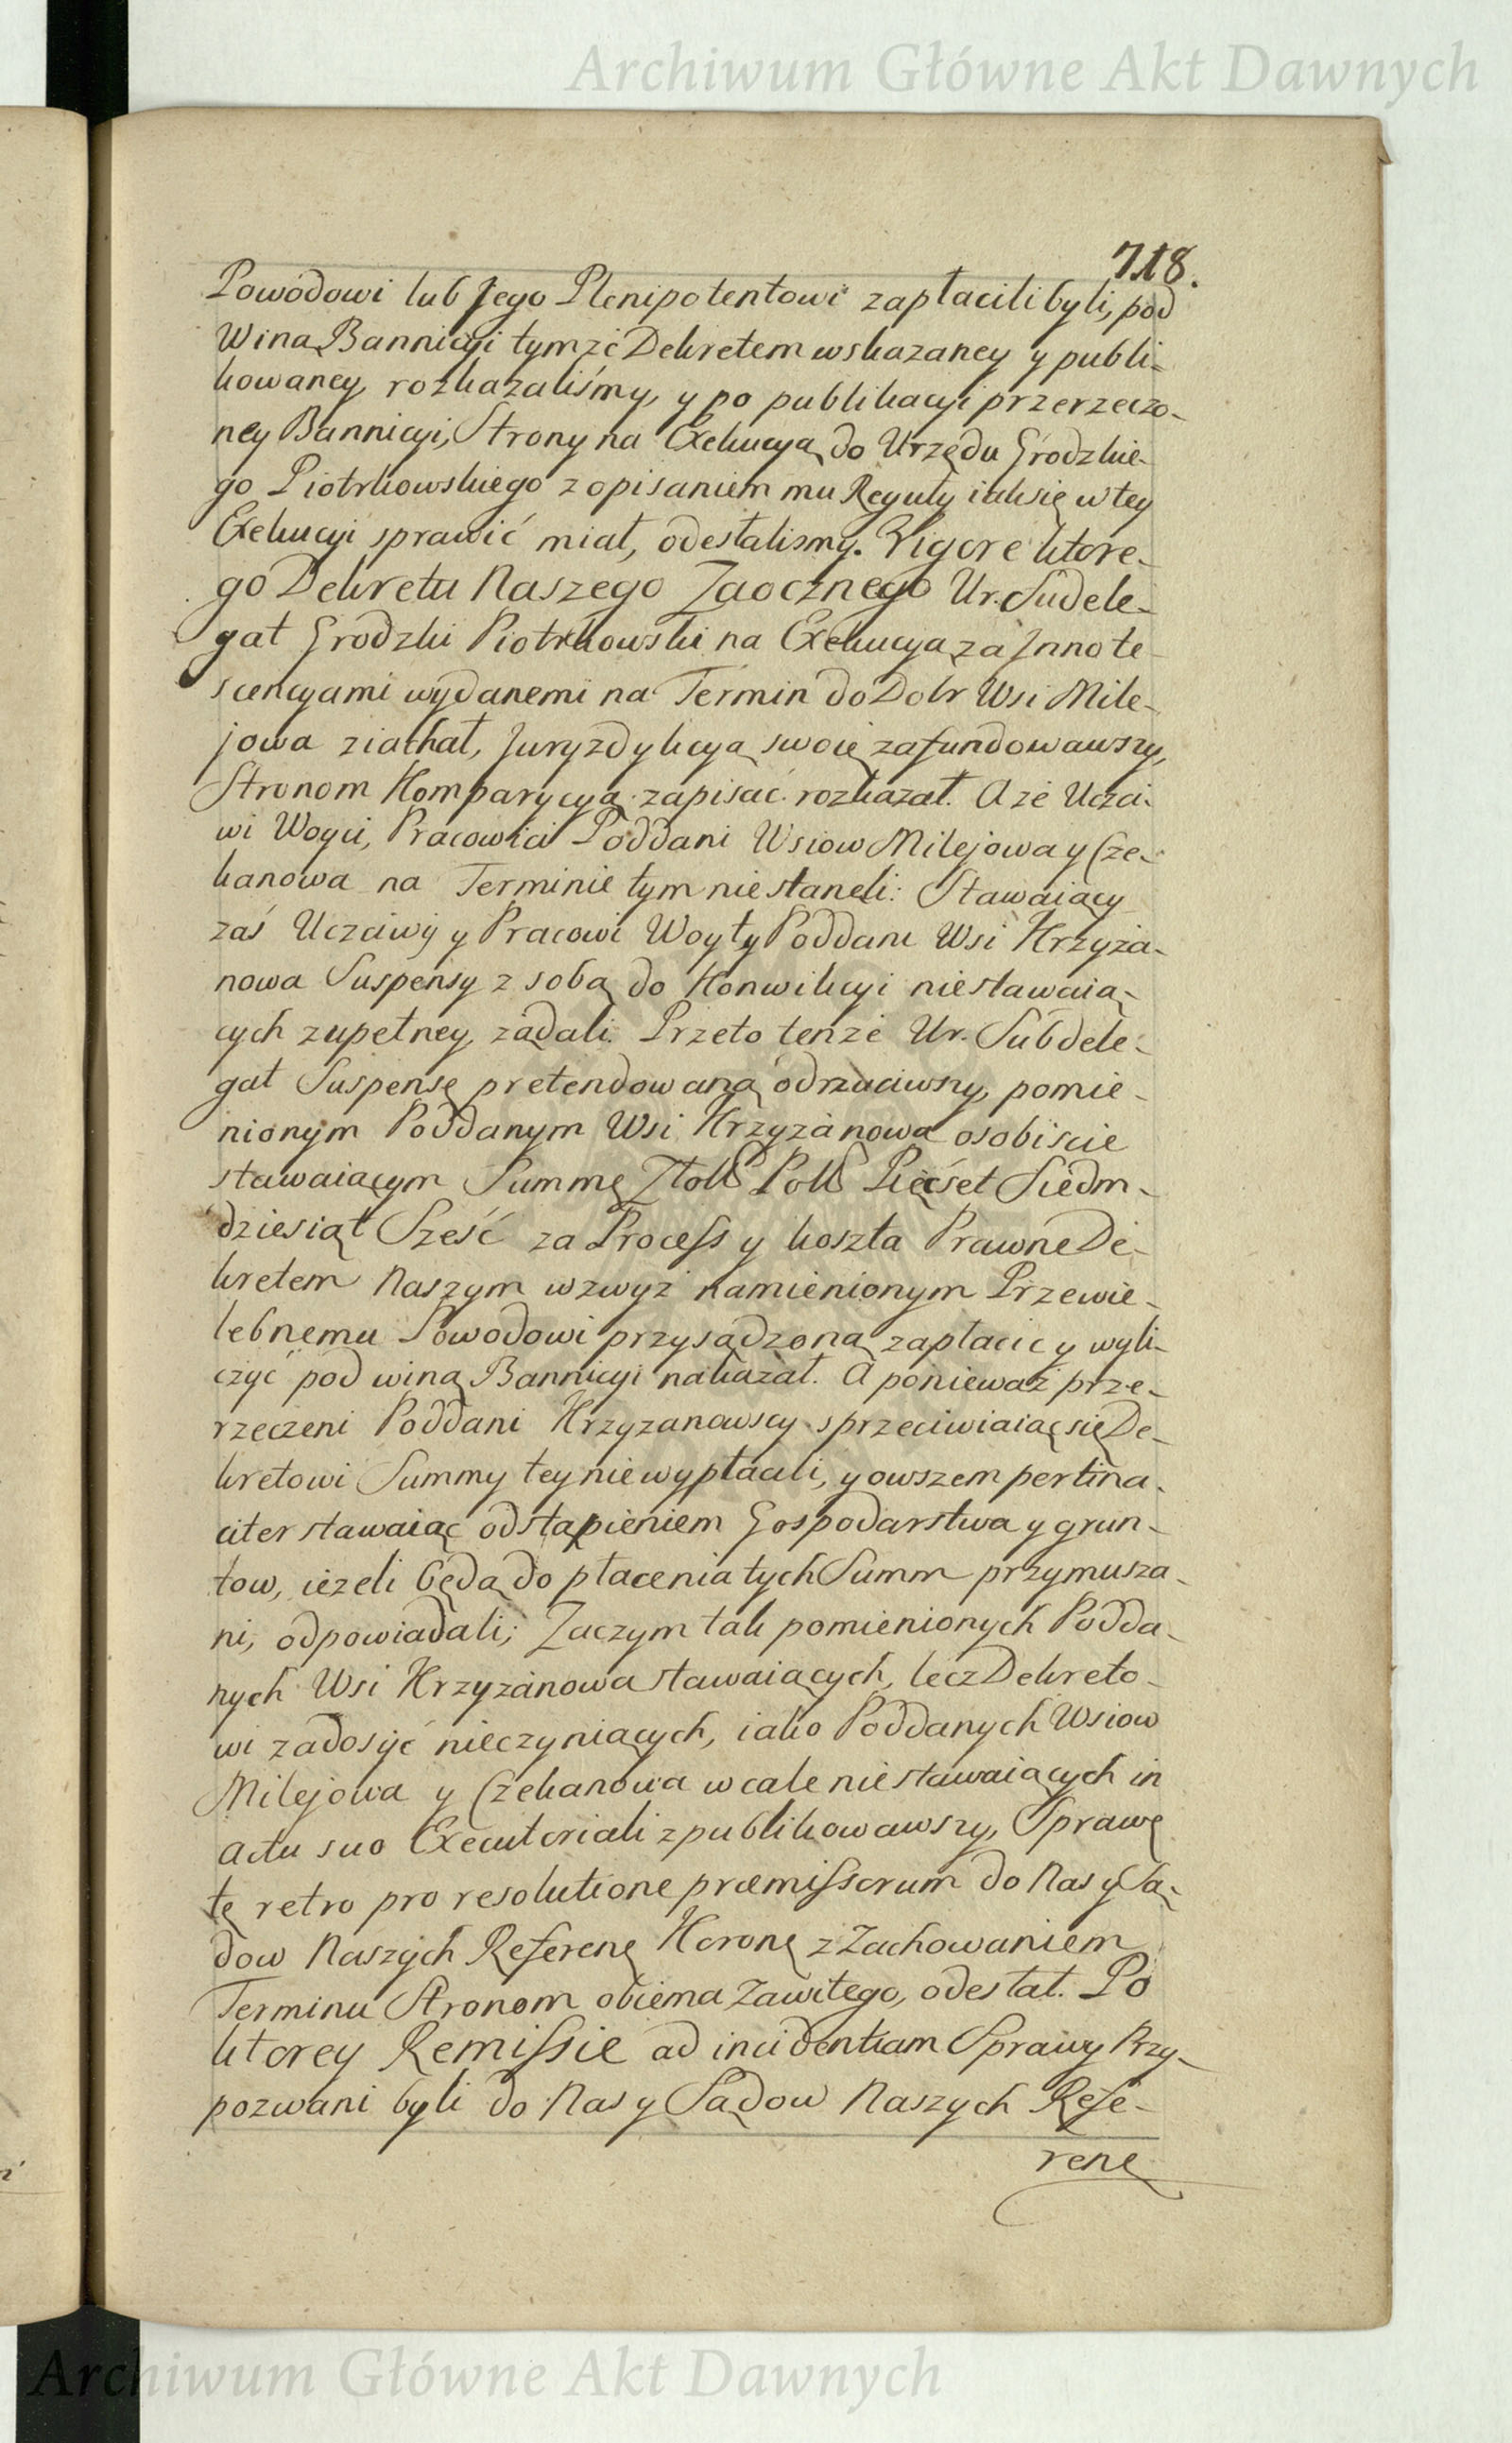 Archiwum Główne Akt Dawnych
718.
Powodowi lub Jego Plenipotentowi zapłacili byli, pod
Winą Bannicyi tymże Dekretem wskazaney y publi-
kowaney, rozkazaliśmy, y po publikacyi przerzeczo-
ney Bannicyi, Strony na Exekucyą do Urzędu Grodzkie-
go Piotrkowskiego z opisaniem mu Reguły iak się w tey
Exekucyi sprawić miał, odesłalismy. Vigore które-
go Dekretu Naszego Zaocznego Ur. Sudele-
gat Grodzki Piotrkowski na Exekucyą za Innote-
scencyami wydanemi na Termin do Dobr Wsi Mile-
jowa ziachał, Juryzdykcyą swoię zafundowawszy,
Stronom Komparycyą zapisać rozkazał. A że Uczci-
wi Woyci, Pracowici Poddani Wsiow Milejowa y Cze-
kanowa na Terminie tym niestaneli: Stawaiący
zaś Uczciwÿ y Pracowi Woyty Poddani Wsi Krzyża-
nowa Suspensy z sobą do Konwikcyi niestawaią-
cych zupełney żądali. Przeto tenże Ur. Subdele-
gat Suspensę pretendowaną odrzuciwszy, pomie-
nionym Poddanym Wsi Krzyżanowa osobiscie
stawaiącym Summę Złott Poll Pięćset Siedm-
dziesiąt Sześć za Process y koszta Prawne De-
kretem Naszym wzwyż namienionym Przewie-
lebnemu Powodowi przysądzoną zapłacic y wyli-
czyć pod winą Bannicyi nakazał. A ponieważ prze-
rzeczeni Poddani Krzyzanowscy sprzeciwiaiąc się De-
kretowi Summy tey niewypłacili, y owszem pertina-
citer stawaiąc odstąpieniem Gospodarstwa y grun-
tow, ieżeli będą do płacenia tych Summ przymusza-
ni, odpowiadali; Zaczym tak pomienionych Podda-
nych Wsi Krzyżanowa stawaiących, lecz Dekreto-
wi zadosyć nieczyniących, iako Poddanych Wsiow
Milejowa y Czekanowa wcale niestawaiących in
actu suo Executoriali zpublikowawszy, Sprawę
tę retro pro resolutione præmissorum do Nas y Są-
dow Naszych Referen Koronn z Zachowaniem
Terminu Stronom obiema Zawitego, odesłał. Po
ktorey Remissie ad incidentiam Sprawy Przy-
pozwani byli do Nas y Sądow Naszych Refe-
ren
Archiwum Główne Akt Dawnych